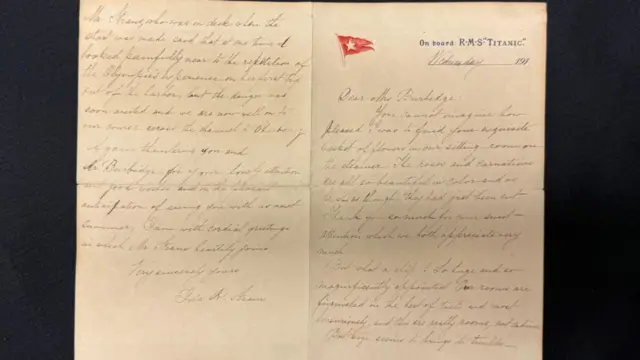 On board R·M·S "TITANIC."
Wednesday 191
Dear Mrs Burbidge:
You cannot imagine how
pleased I was to find your exquisite
basket of flowers in our sitting room on
the steamer. The roses and carnations
are all so beautiful in color and as
fresh as though they had just been cut
Thank you so much for your sweet
attention which we both appreciate very
much
But what a ship! So huge and so
magnificently appointed. Our rooms are
furnished in the best of taste and most
luxuriously, and they are really rooms, not cabins.
But size seems to bring its troubles—
Mr. Straus, who was on deck when the
start was made said that at one time it
looked painfully near to the repetition of
the Olympic's experience on her first trip
out of the harbor, but the danger was
soon averted and we are now well on to
our course across the channel to Cherbourg
Again thanking you and
Mr Burbidge for your lovely attention
and good wishes and in the pleasant
anticipation of seeing you with us next
summer, I am with cordial greetings
in which Mr Straus heartily joins
Very sincerely yours
Ida R. Straus